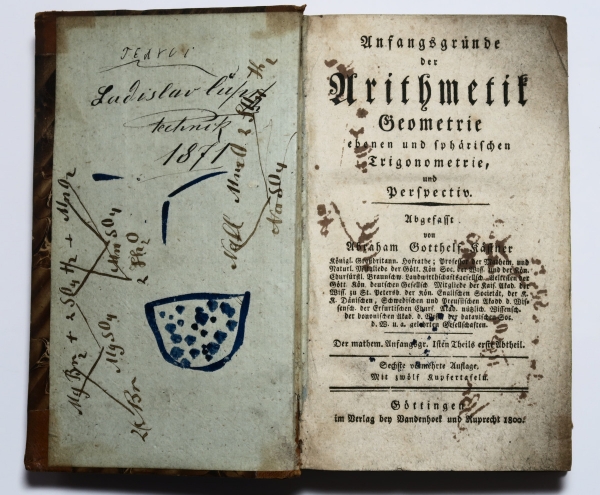 Ladislav
technik
1871
MnSO4
2H2O
MgSO4
2Br
Na2SO4
Anfangsgründe
der
Arithmetik
Geometrie
ebenen und sphärischen
Trigonometrie,
und
Perspectiv.
Abgefasst
von
Abraham Gotthelf Kästner
Königl. Großbritann. Hofrathe; Professor der Mathem. und
Naturl. Mitgliede der Gött. Kön Soc. der Wiss. und der Kön.
Churfürstl. Braunschw. Landwirthschaftsgesellsch. Aeltesten der
Gött. Kön. deutschen Gesellsch. Mitgliede der Kais. Akad. der
Wiss. zu St. Petersb. der Kön. Societät, der K.
K. Dänischen, Schwedischen und Preussischen Akad. d. Wis-
sensch. der Erfurtischen Churf. Akad. nützlich. Wissensch.
der bononischen Akad. d. Wiss. der batavischen Soc.
d. W. u. a. gelehrten Gesellschaften.
Der mathem. Anfangsgr. Isten Theils erste Abtheil.
Sechste vermehrte Auflage.
Mit zwölf Kupfertafeln.
Göttingen
im Verlag bey Vandenhoek und Ruprecht 1800.